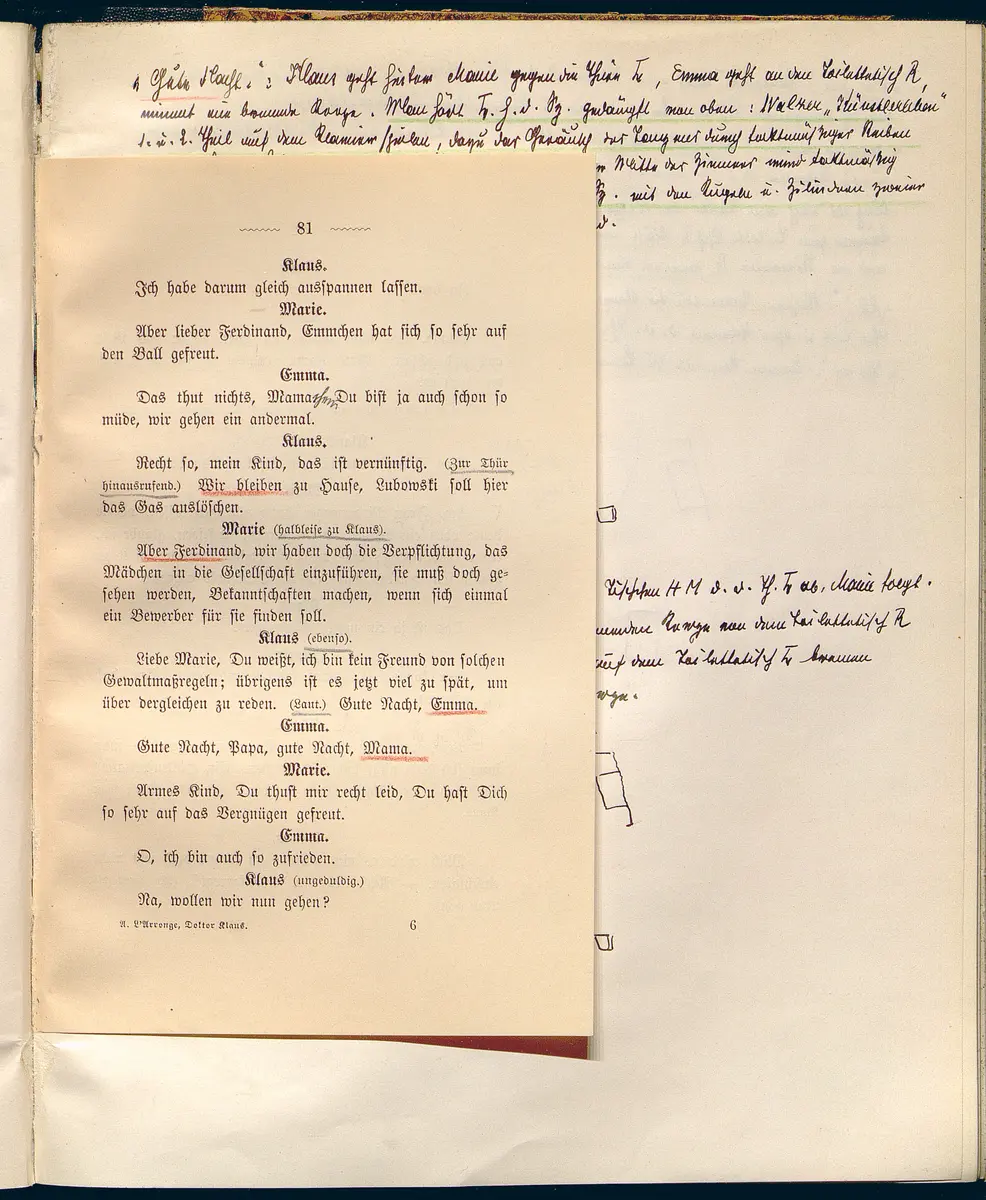 "Gute Nacht.": Klaus geht hinter Marie gegen die Thüre L, Emma geht an den Toilettetisch R,
nimmt die brennende Kerze. Man hört L. h. d. Sz. gedämpft von oben: Walzer "Künstlerleben"
1. u. 2. Theil auf dem Klavier spielen, dazu das Geräusch des Tanzens durch taktmäßiges Reiben
Mitte des Zimmers wird taktmäßig
Sz. mit den Kugeln u. Zilindern zweier
81
Klaus.
Ich habe darum gleich ausspannen lassen.
Marie.
Aber lieber Ferdinand, Emmchen hat sich so sehr auf
den Ball gefreut.
Emma.
Das thut nichts, Mamachen, Du bist ja auch schon so
müde, wir gehen ein andermal.
Klaus.
Recht so, mein Kind, das ist vernünftig. (Zur Thür
hinausrufend.) Wir bleiben zu Hause, Lubowski soll hier
das Gas auslöschen.
Marie (halbleise zu Klaus).
Aber Ferdinand, wir haben doch die Verpflichtung, das
Mädchen in die Gesellschaft einzuführen, sie muß doch ge-
sehen werden, Bekanntschaften machen, wenn sich einmal
ein Bewerber für sie finden soll.
Klaus (ebenso).
Liebe Marie, Du weißt, ich bin kein Freund von solchen
Gewaltmaßregeln; übrigens ist es jetzt viel zu spät, um
über dergleichen zu reden. (Laut.) Gute Nacht, Emma.
Emma.
Gute Nacht, Papa, gute Nacht, Mama.
Marie.
Armes Kind, Du thust mir recht leid, Du hast Dich
so sehr auf das Vergnügen gefreut.
Emma.
O, ich bin auch so zufrieden.
Klaus (ungeduldig.)
Na, wollen wir nun gehen?
A. L'Arronge, Doktor Klaus. 6
d. d. Th. L ab, Marie folgt.
Kerze von dem Toilettetisch R
auf dem Toilettetisch L brennen